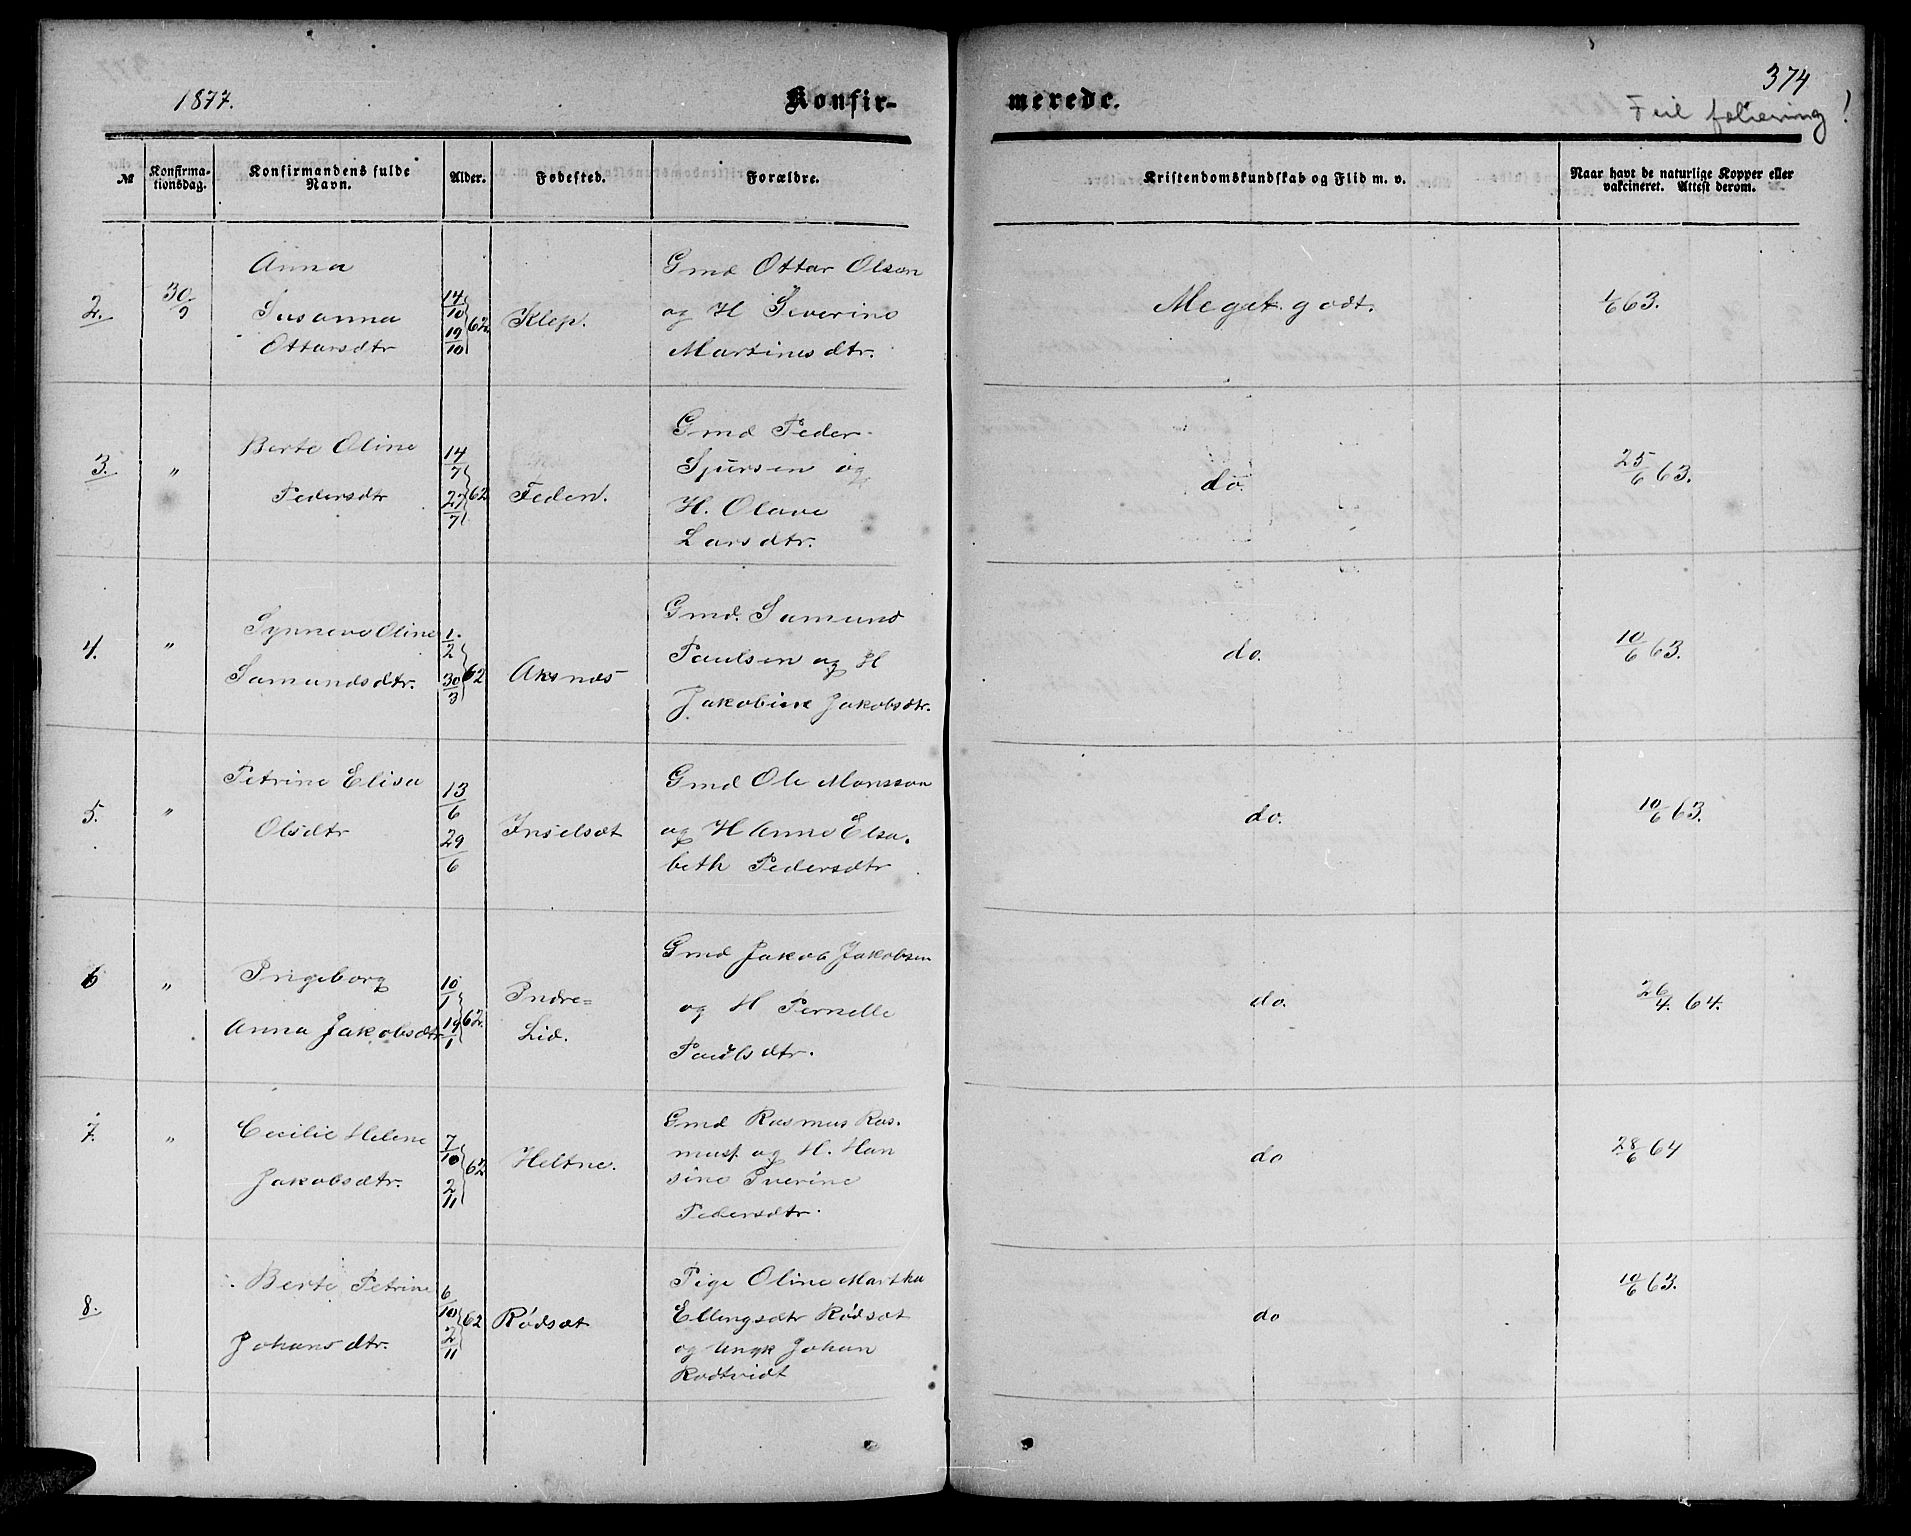 1877.
Konfir-
merede.
374
Feil foliering!
№
Konfirma-
tionsdag.
Konfirmandens fulde
Navn.
Alder.
Fødested.
Forældre.
Kristendomskundskab og Flid m. v.
Naar havt de naturlige Kopper eller
vakcineret. Attest derom.
2. 30/9 Anna
Susanna
Ottarsdtr
14/10 19/10 62.
Klep.
Gmd Ottar Olsen
og H Severine
Martinusdtr.
Meget godt.
1/6 63.
3. " Berte Oline
Pedersdtr
14/7 27/7 62
Feden.
Gmd Peder
Sjursen og
H. Olave
Larsdtr.
do.
25/6 63.
4. " Synneve Oline
Samundsdtr.
1/2 30/3 62
Aksnæs
Gmd. Samund
Paulsen og H
Jakobine Jakobsdtr.
do.
10/6 63.
5. " Petrine Elisa
Olsdtr
13/6 29/6
Inselsæt
Gmd Ole Monsson
og H Anne Elsa-
beth Pedersdtr
do.
10/6 63.
6 " Ingeborg
Anna Jakobsdtr
10/1 19/1 62.
Indre-
Lid.
Gmd Jakob Jakobsen
og H Pernelle
Paulsdtr.
do.
26/4. 64.
7. " Cecilie Helene
Jakobsdtr.
7/10 2/11 62
Heltne.
Gmd Rasmus Ras-
musf. og H. Han
sine Iverine
Pedersdtr.
do
28/6 64
8. Berte Petrine
Johansdtr.
6/10 2/11 62
Rødsæt
Pige Oline Martha
Ellingsdtr Rødsæt
og Ungk Johan
Rødtvidt
do
10/6 63.